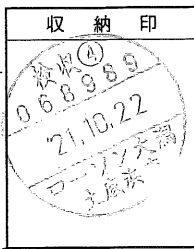 収納印
検収④
068989
'21.10.22
ローソン大溜